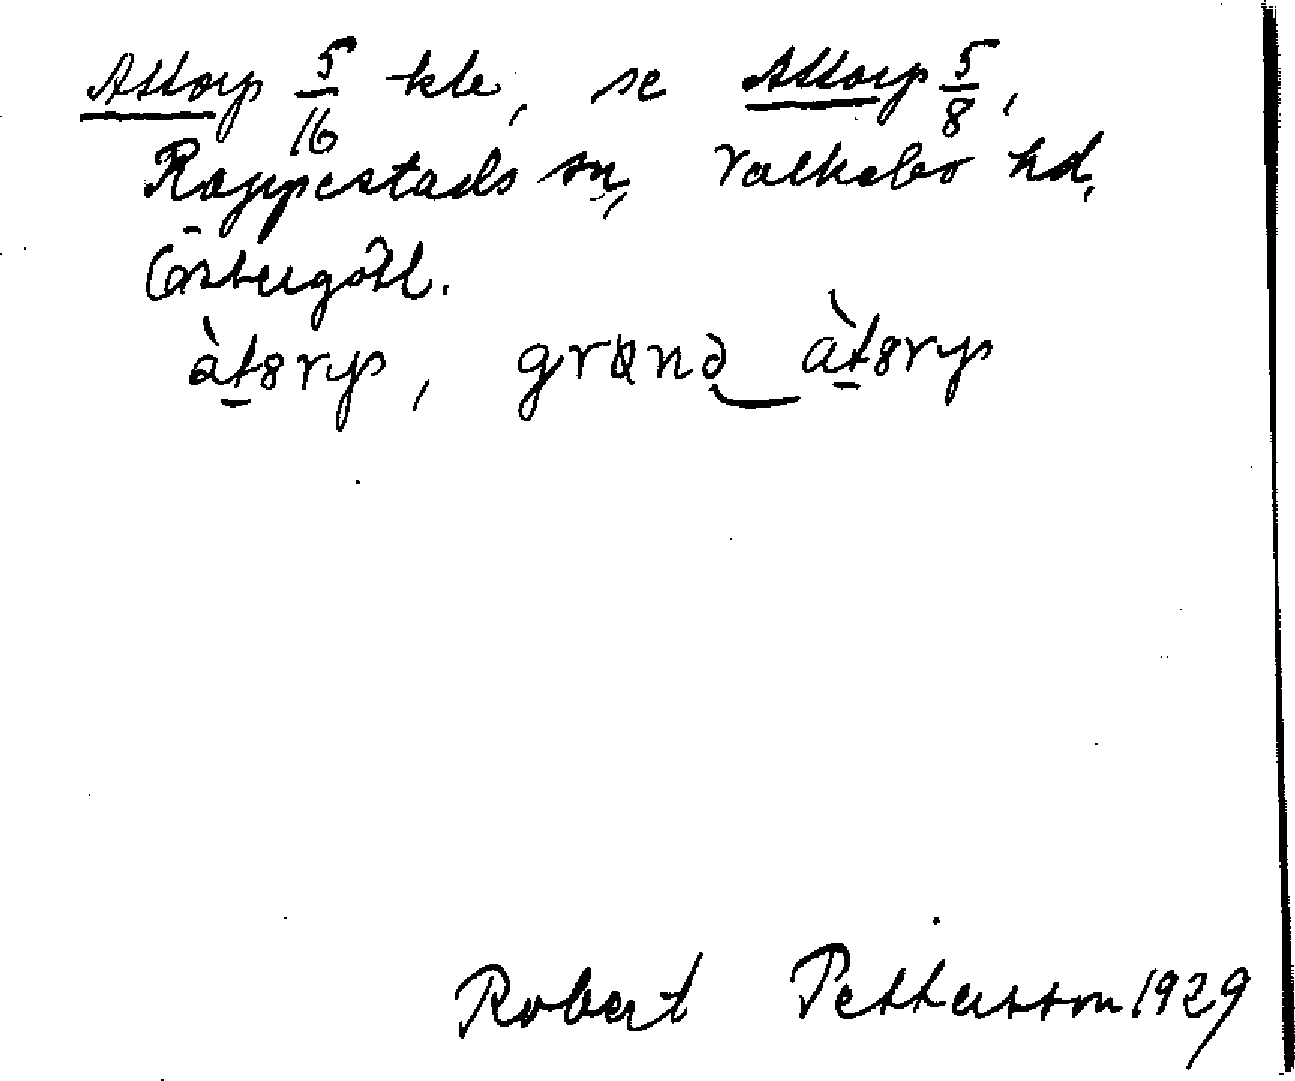 Attorp 5/16 kle, se Attorp 5/8,
Rappestads sn, Valkebo hd,
Östergötl.
àt8rp, grånd àt8rp
Robert Pettersson 1929